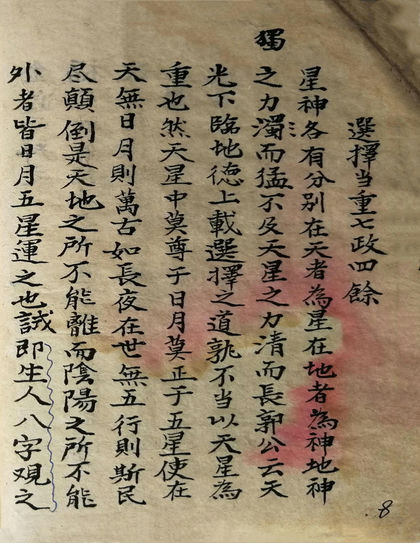 選擇当重七政四餘
星神各有分别在天者為星在地者為神地神
之力濁而猛不及天星之力清而長郭公云天
光下臨地德上載選擇之道孰不当以天星為
重也然天星中莫尊于日月莫正于五星使在
天無日月則萬古如長夜在世無五行則斯民
尽顛倒是天地之所不能離而陰陽之所不能
外者皆日月五星運之也誠即生人八字观之
獨
8